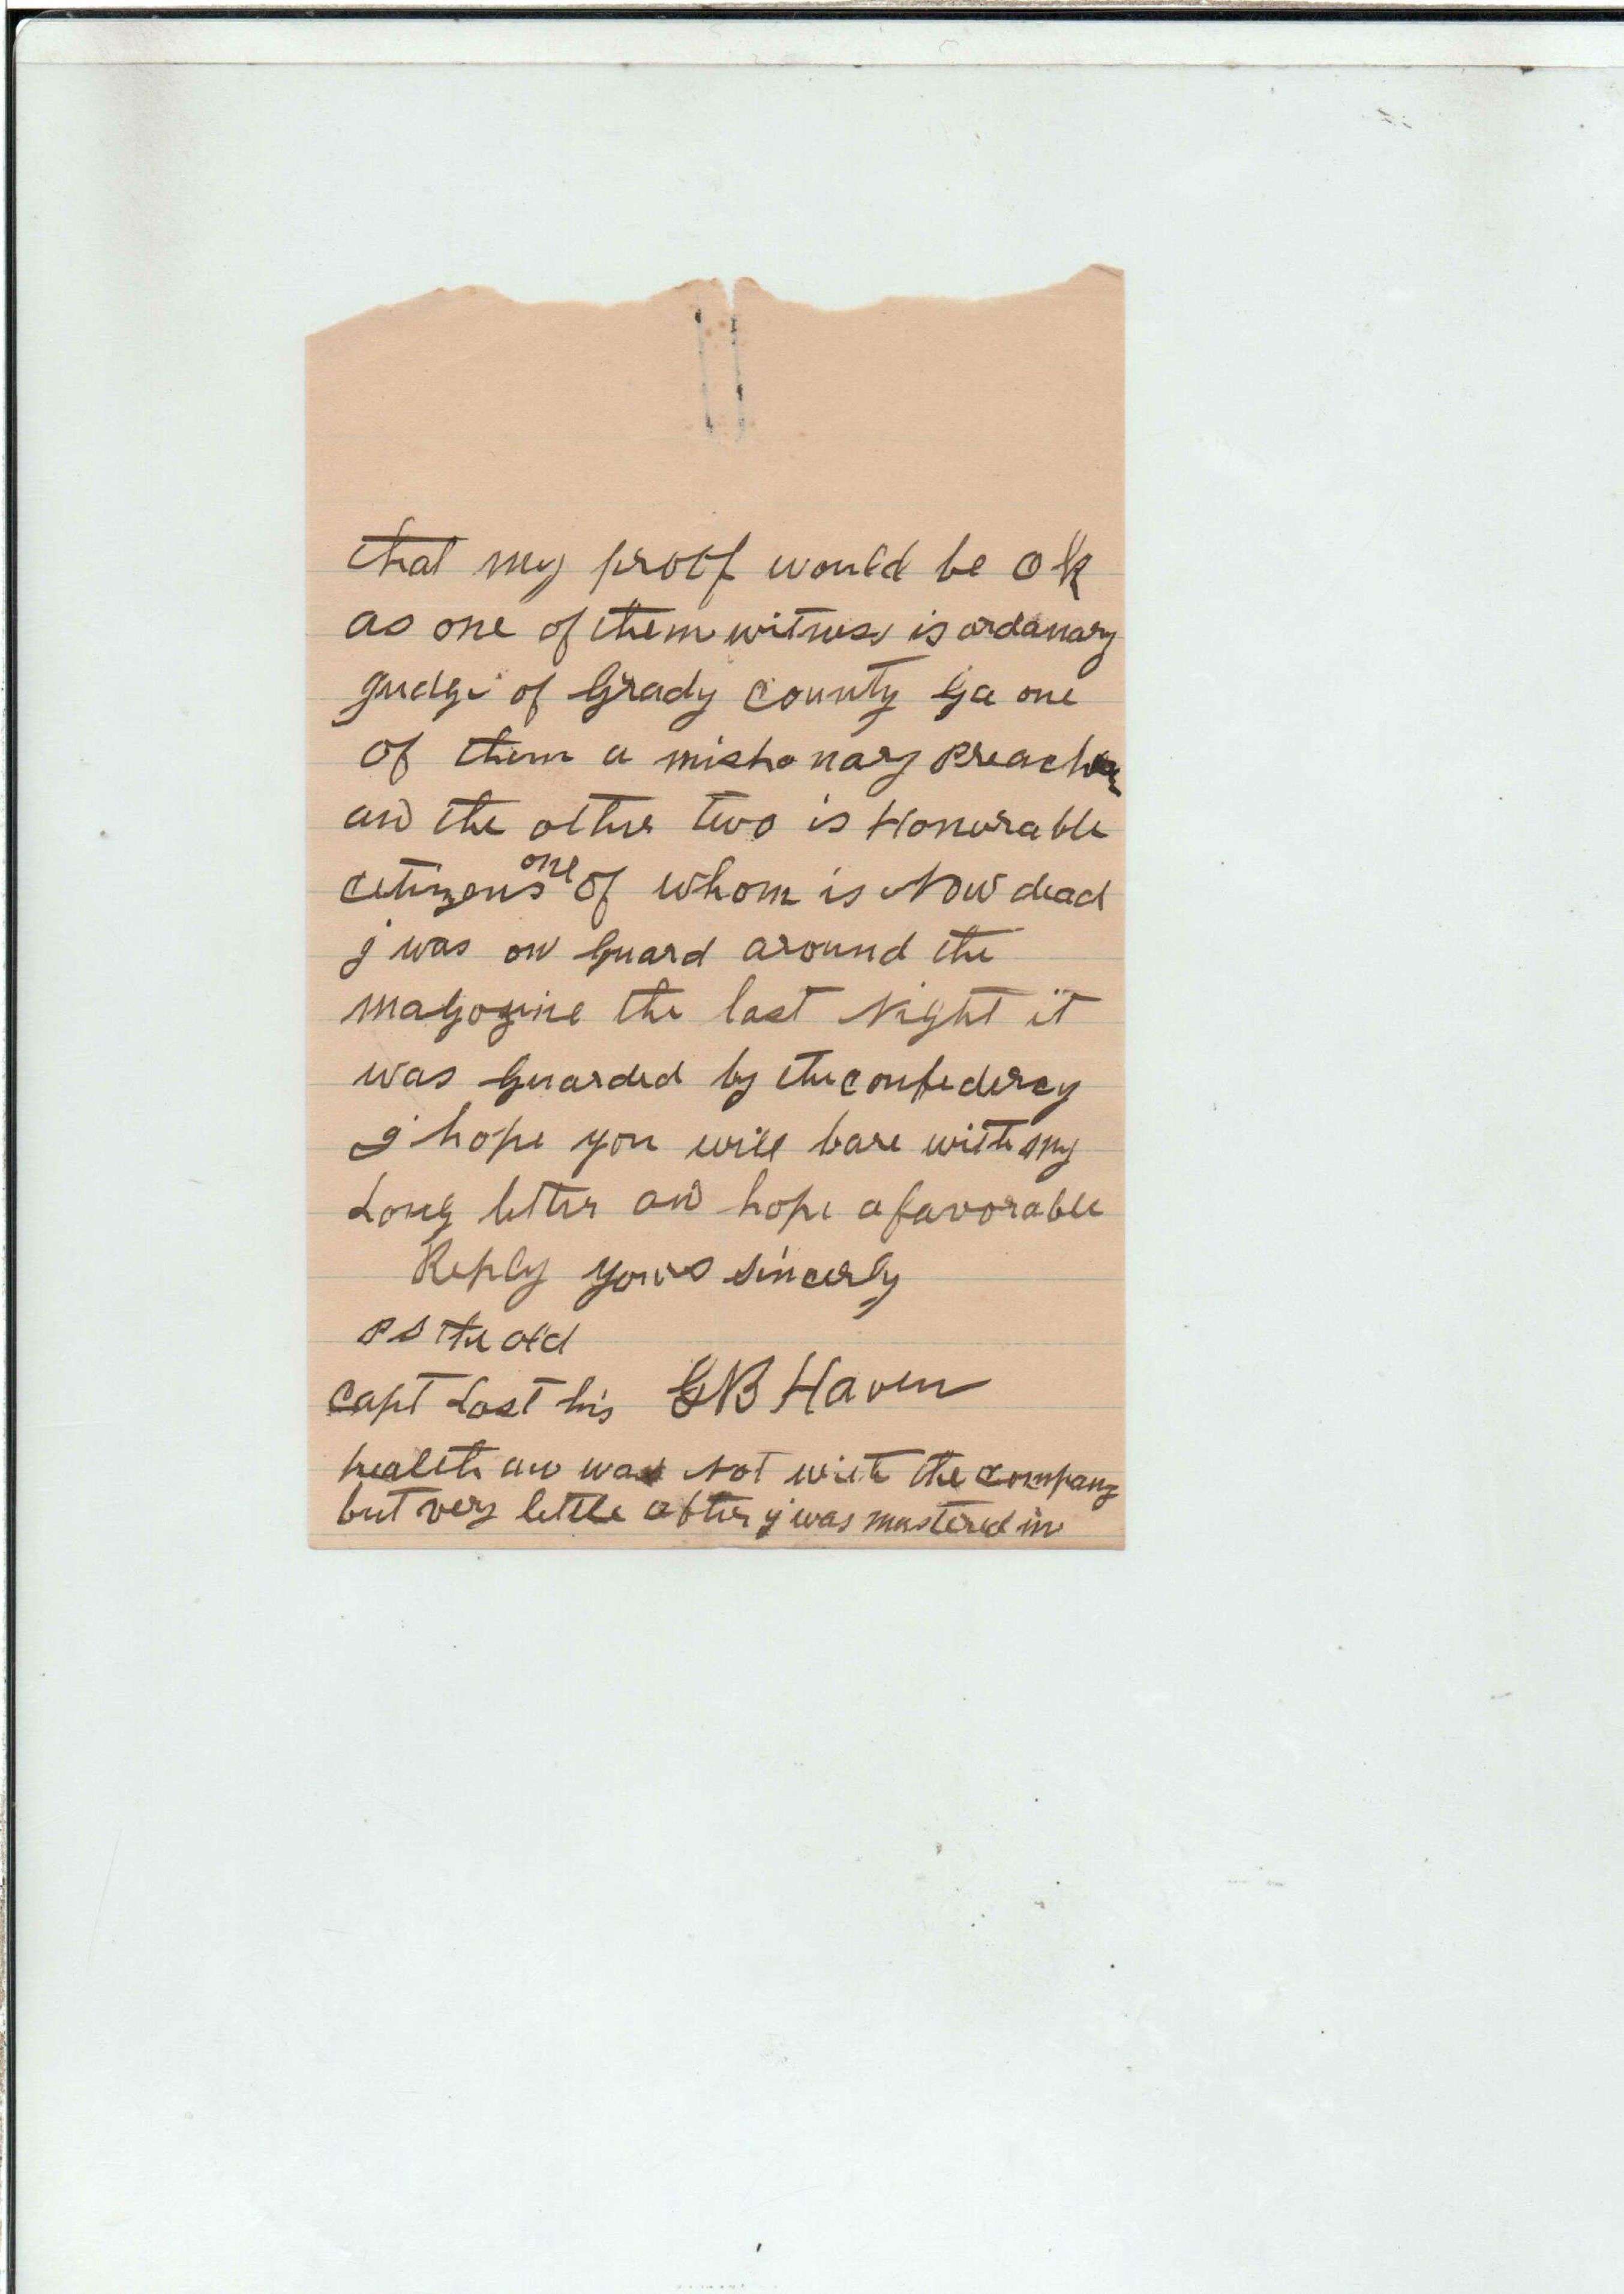 that my proof would be ok
as one of them witness is ordanary
Judge of Grady County Ga one
of them a mishonary Preacher
and the other two is Honorable
citizens one of whom is Now dead
I was on Guard around the
magozine the last Night it
was Guarded by the confedercy
I hope you will bare with my
Long letter and hope a favorable
Reply yours sincerly
PS the old
Capt Lost his GB Haven
health and was Not with the company
but very little after I was mustered in